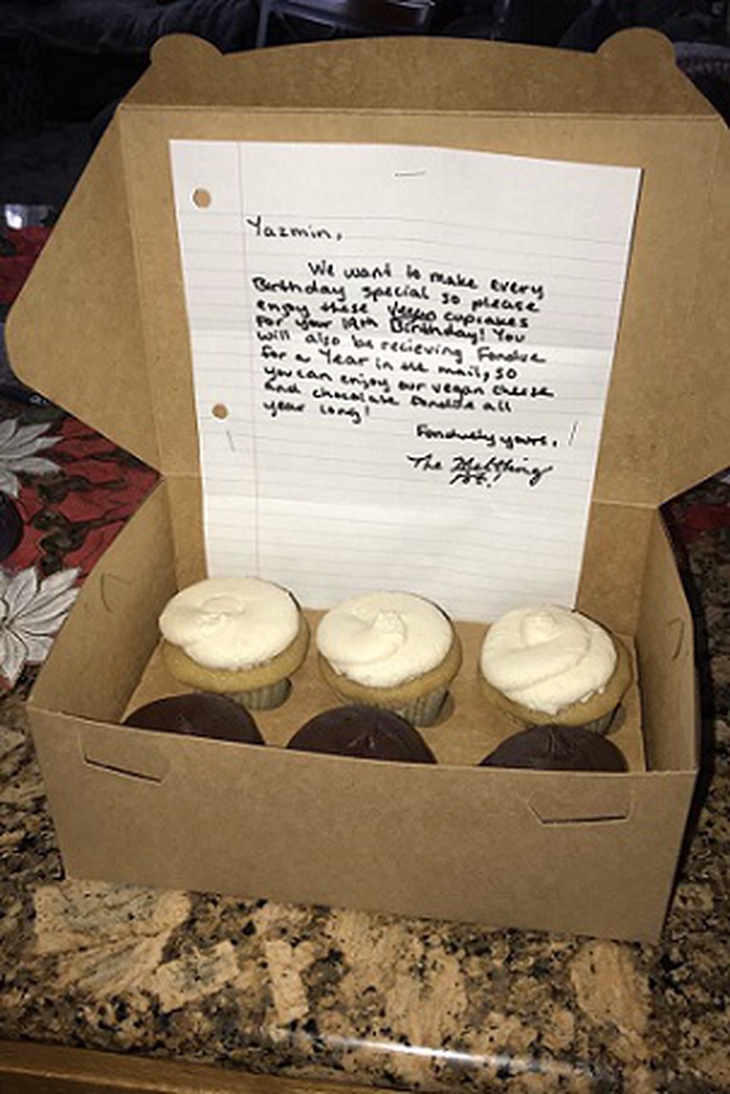 Yazmin,
We want to make every
Birthday special so please
enjoy these vegan cupcakes
for your 19th Birthday! You
will also be recieving Fondue
for a Year in the mail, so
you can enjoy our vegan cheese
and chocolate fondue all
year long!
Fonduely yours,
The Meltting
Pot!